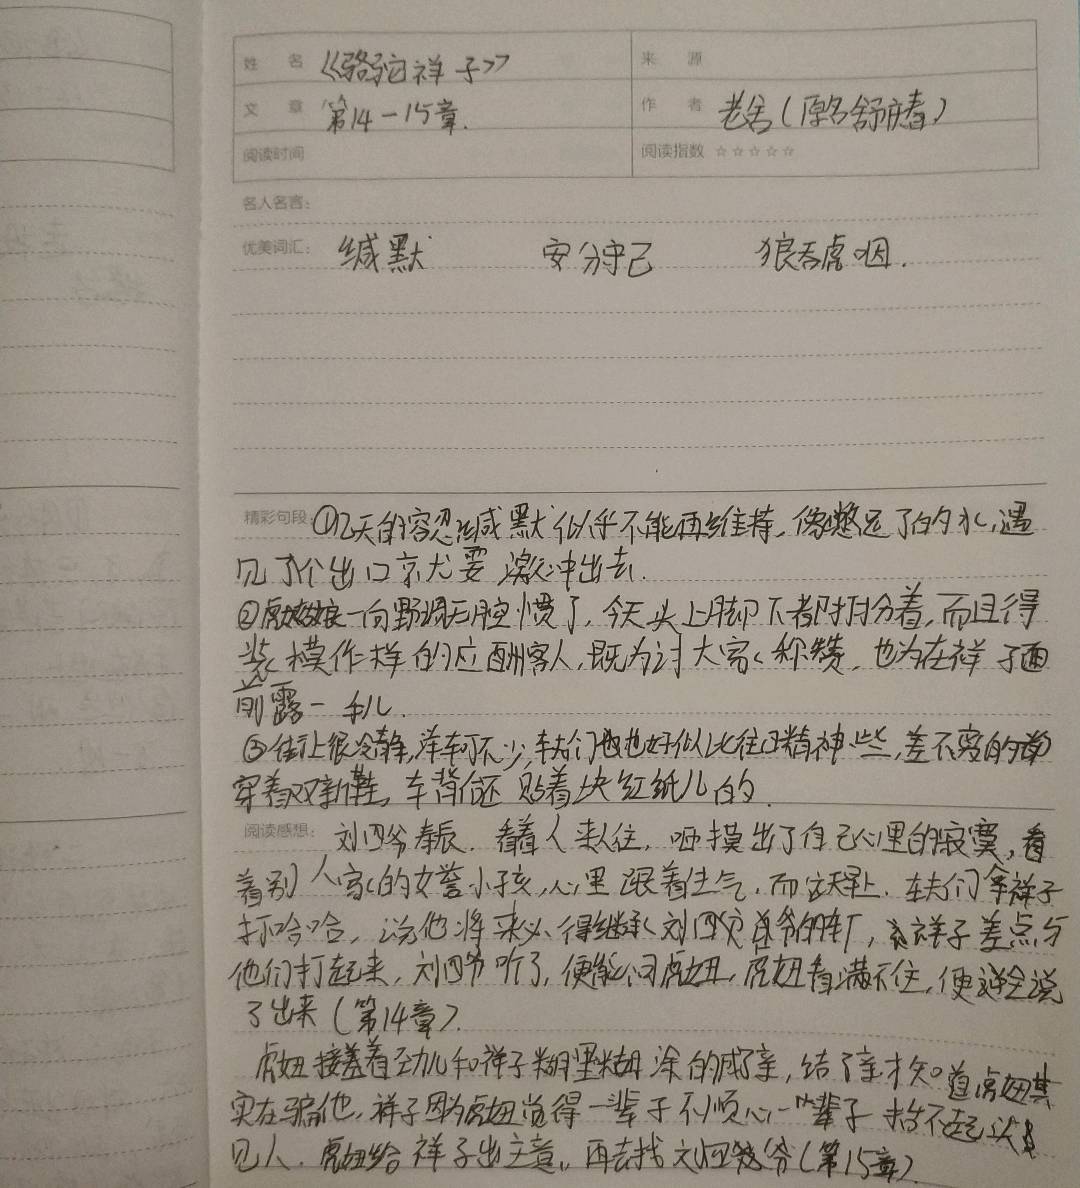 姓 名 《骆驼祥子》 来 源
文 章 第14-15章. 作 者 老舍(原名舒庆春)
阅读时间 阅读指数 ☆☆☆☆☆
名人名言:
优美词汇: 缄默 安分守己 狼吞虎咽.
精彩句段: ①几天的容忍缄默似乎不能再维持,像憋足了的水,遇
见个出口就要激冲出去.
②虎姑娘一向野调无腔惯了,今天头上脚下都打扮着,而且得
装模作样的应酬客人,既为讨大家称赞,也为在祥子面
前露一手儿.
③街上很冷静,洋车可不少,车夫们也好似比往日精神些,差不多的都
穿着双新鞋,车背后还贴着块红纸儿的.
阅读感想: 刘四爷寿辰.看着人来人往,咂摸出了自己心里的寂寞,看
着别人家的女眷小孩,心里跟着生气.而这天早上.车夫们拿祥子
打哈哈,说他将来必得继承刘四爷的车厂,祥子差点与
他们打起来,刘四爷听了,便问虎妞,虎妞看瞒不住,便全说
了出来(第14章).
虎妞接着劲儿和祥子糊里糊涂的成了亲,结了亲才知道虎妞其
实在骗他,祥子因为虎妞觉得一辈子不顺心一辈子抬不起头
见人.虎妞给祥子出主意,再去找刘四爷(第15章)